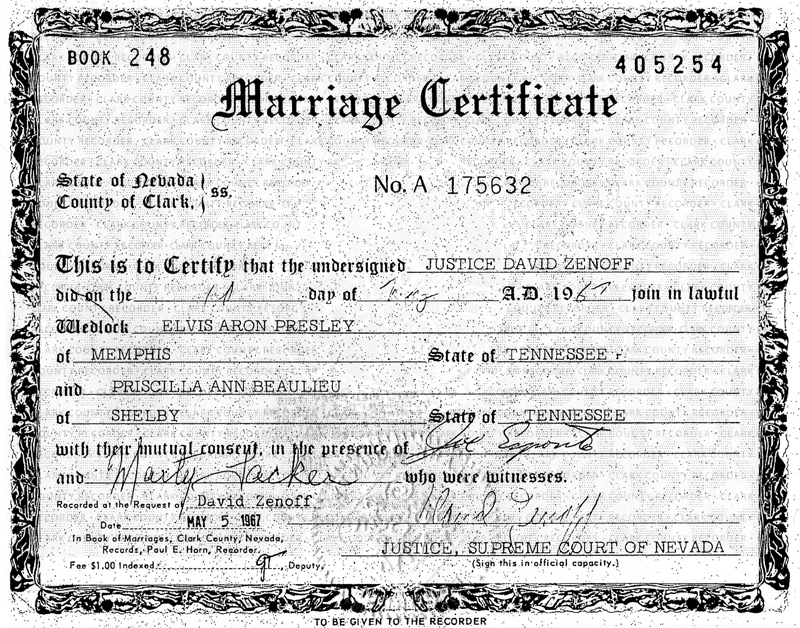 BOOK 248
405254
Marriage Certificate
State of Nevada
County of Clark, ss.
No. A 175632
This is to Certify that the undersigned JUSTICE DAVID ZENOFF
did on the 1st day of May A.D. 1967 join in lawful
Wedlock ELVIS ARON PRESLEY
of MEMPHIS State of TENNESSEE
and PRISCILLA ANN BEAULIEU
of SHELBY State of TENNESSEE
with their mutual consent, in the presence of Joe Esposito
and Marty Lacker who were witnesses.
Recorded at the Request of David Zenoff
Date MAY 5 1967
In Book of Marriages, Clark County, Nevada,
Records, Paul E. Horn, Recorder.
Fee $1.00 Indexed Deputy
David Zenoff
JUSTICE, SUPREME COURT OF NEVADA
(Sign this in official capacity.)
TO BE GIVEN TO THE RECORDER